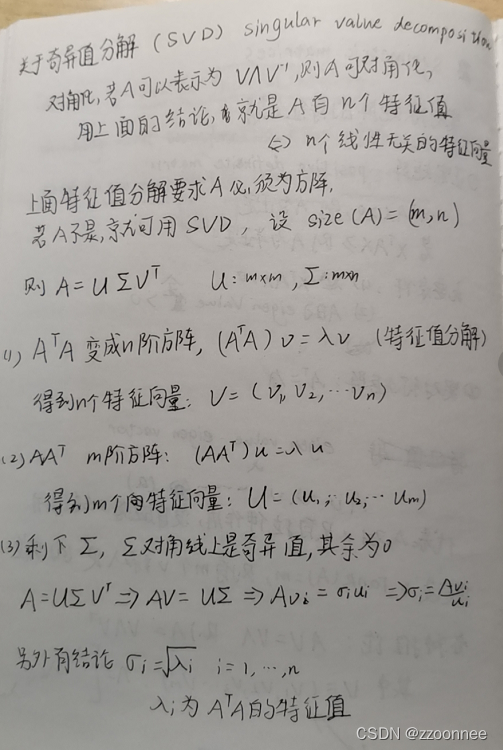 关于奇异值分解 (SVD) singular value decomposition
对角化, 若A可以表示为 VΛV⁻¹, 则A可对角化,
用上面的结论, 就是A有n个特征值
⇔ n个线性无关的特征向量
上面特征值分解要求A必须为方阵,
若A不是, 就可用SVD, 设 size(A)=(m,n)
则 A=UΣVᵀ U: m×m, Σ: m×n
(1) AᵀA 变成n阶方阵, (AᵀA)v=λv (特征值分解)
得到n个特征向量: V=(v₁, v₂, ⋯vₙ)
(2) AAᵀ m阶方阵: (AAᵀ)u=λu
得到m个特征向量: U=(u₁, u₂, ⋯ uₘ)
(3) 剩下Σ, Σ对角线上是奇异值, 其余为0
A=UΣVᵀ ⇒ AV=UΣ ⇒ Avᵢ=σᵢuᵢ ⇒σᵢ=Avᵢ/uᵢ
另外有结论 σᵢ=√λᵢ i=1,⋯,n
λᵢ为AᵀA的特征值
CSDN @zzoonnee